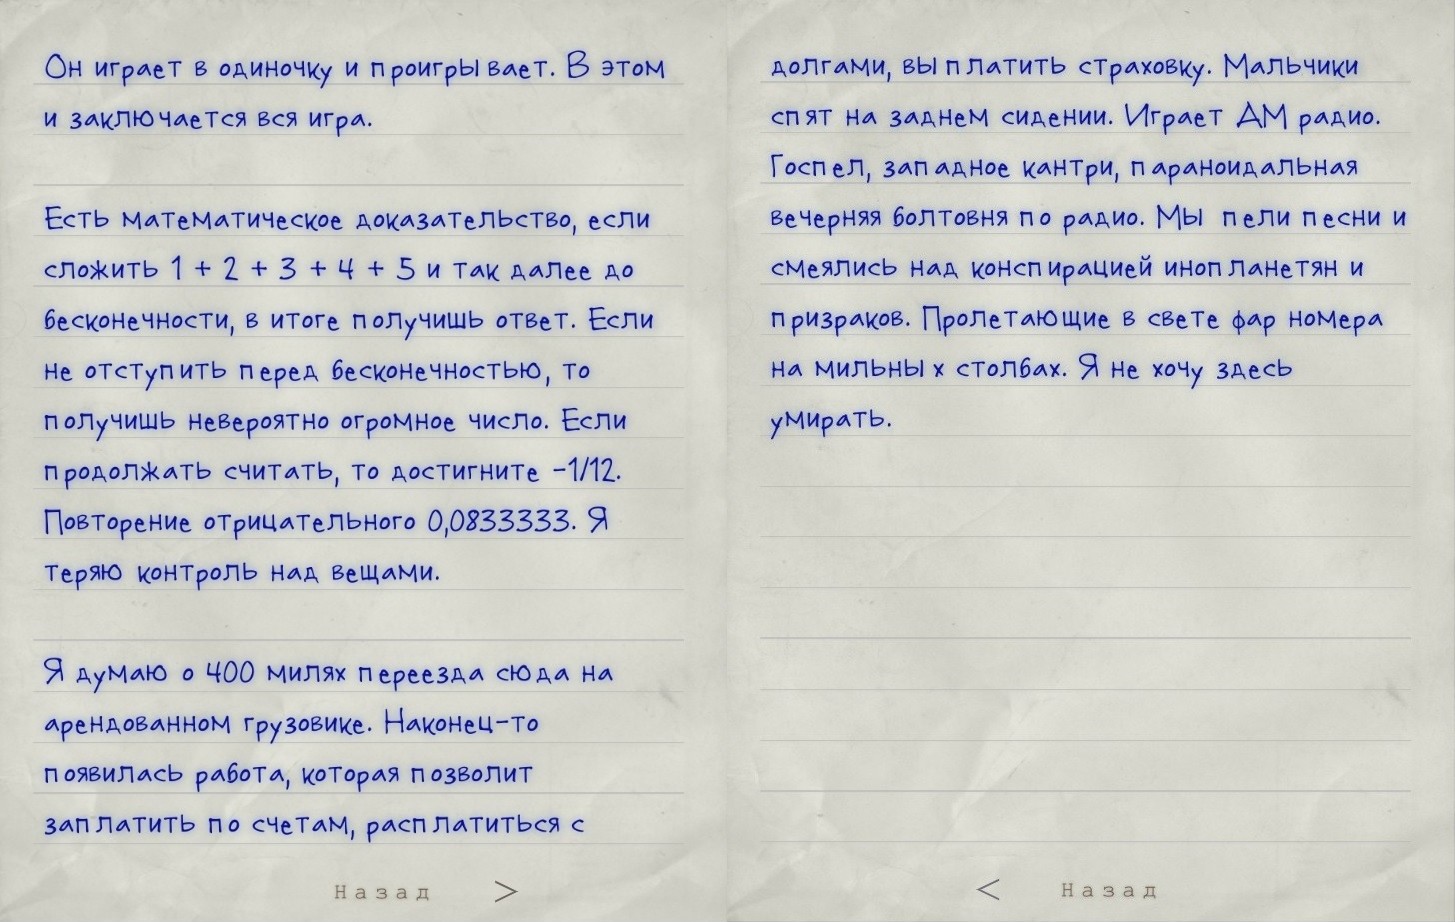 Он играет в одиночку и проигрывает. В этом
и заключается вся игра.
Есть математическое доказательство, если
сложить 1 + 2 + 3 + 4 + 5 и так далее до
бесконечности, в итоге получишь ответ. Если
не отступить перед бесконечностью, то
получишь невероятно огромное число. Если
продолжать считать, то достигните -1/12.
Повторение отрицательного 0,0833333. Я
теряю контроль над вещами.
Я думаю о 400 милях переезда сюда на
арендованном грузовике. Наконец-то
появилась работа, которая позволит
заплатить по счетам, расплатиться с
Назад >
долгами, выплатить страховку. Мальчики
спят на заднем сидении. Играет АМ радио.
Госпел, западное кантри, параноидальная
вечерняя болтовня по радио. Мы пели песни и
смеялись над конспирацией инопланетян и
призраков. Пролетающие в свете фар номера
на мильных столбах. Я не хочу здесь
умирать.
< Назад